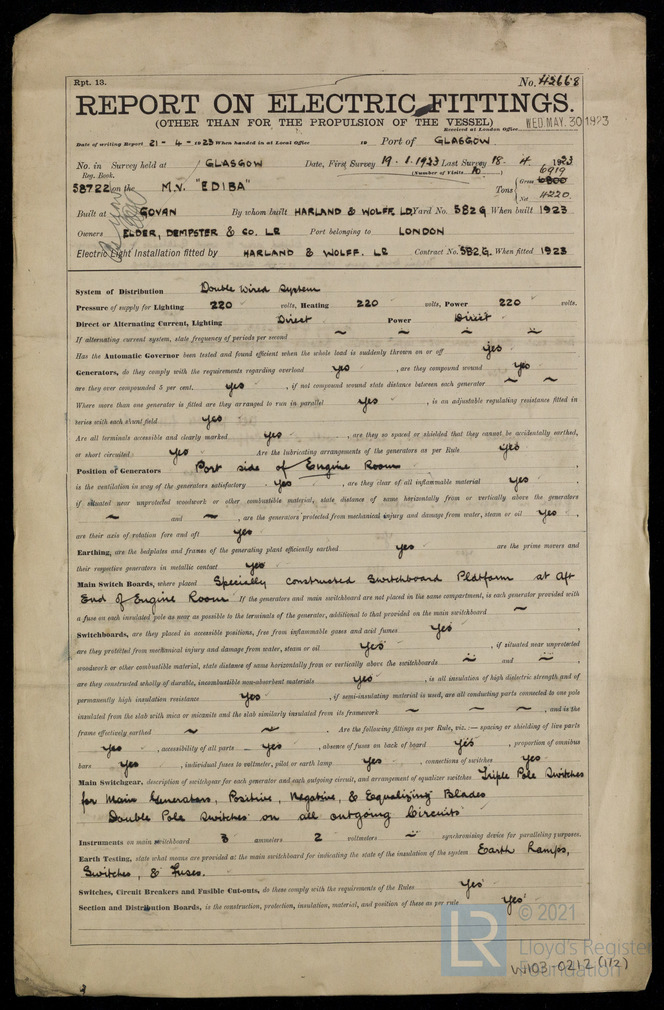 Rpt. 13.
No. 42668
REPORT ON ELECTRIC FITTINGS.
(OTHER THAN FOR THE PROPULSION OF THE VESSEL)
Received at London Office WED. MAY. 30 1923
Date of writing Report 21 - 4 - 1923 When handed in at Local Office 19 Port of GLASGOW
No. in Survey held at GLASGOW Date, First Survey 19.1.1923 Last Survey 18. 4 1923
Reg. Book. (Number of Visits 10) 6919
58722 on the M.V. "EDIBA" Tons { Gross 6800
Net 4220
Built at GOVAN By whom built HARLAND & WOLFF. LD Yard No. 582 G When built 1923
Owners ELDER, DEMPSTER & CO. LD Port belonging to LONDON
Electric Light Installation fitted by HARLAND & WOLFF. LD Contract No. 582.G. When fitted 1923
System of Distribution Double Wired System
Pressure of supply for Lighting 220 volts, Heating 220 volts, Power 220 volts.
Direct or Alternating Current, Lighting Direct Power Direct
If alternating current system, state frequency of periods per second ~ ~ ~ ~
Has the Automatic Governor been tested and found efficient when the whole load is suddenly thrown on or off yes
Generators, do they comply with the requirements regarding overload yes, are they compound wound yes
are they over compounded 5 per cent. yes, if not compound wound state distance between each generator ~ ~
Where more than one generator is fitted are they arranged to run in parallel yes, is an adjustable regulating resistance fitted in
series with each shunt field yes
Are all terminals accessible and clearly marked yes, are they so spaced or shielded that they cannot be accidentally earthed,
or short circuited yes Are the lubricating arrangements of the generators as per Rule yes
Position of Generators Port side of Engine Room
is the ventilation in way of the generators satisfactory yes, are they clear of all inflammable material yes,
if situated near unprotected woodwork or other combustible material, state distance of same horizontally from or vertically above the generators
~ and ~, are the generators protected from mechanical injury and damage from water, steam or oil yes,
are their axis of rotation fore and aft yes
Earthing, are the bedplates and frames of the generating plant efficiently earthed yes are the prime movers and
their respective generators in metallic contact yes
Main Switch Boards, where placed Specially constructed Switchboard Platform at Aft
End of Engine Room If the generators and main switchboard are not placed in the same compartment, is each generator provided with
a fuse on each insulated pole as near as possible to the terminals of the generator, additional to that provided on the main switchboard ~
Switchboards, are they placed in accessible positions, free from inflammable gases and acid fumes yes,
are they protected from mechanical injury and damage from water, steam or oil yes, if situated near unprotected
woodwork or other combustible material, state distance of same horizontally from or vertically above the switchboards ~ and ~,
are they constructed wholly of durable, incombustible non-absorbent materials yes, is all insulation of high dielectric strength and of
permanently high insulation resistance yes, if semi-insulating material is used, are all conducting parts connected to one pole
insulated from the slab with mica or micanite and the slab similarly insulated from its framework ~ ~ ~, and is the
frame effectively earthed ~ ~. Are the following fittings as per Rule, viz.:— spacing or shielding of live parts
yes, accessibility of all parts yes, absence of fuses on back of board yes, proportion of omnibus
bars yes, individual fuses to voltmeter, pilot or earth lamp yes, connections of switches yes
Main Switchgear, description of switchgear for each generator and each outgoing circuit, and arrangement of equalizer switches Triple Pole Switches
for Main Generators, Positive, Negative, & Equalizing Blades
Double Pole Switches on all outgoing Circuits
Instruments on main switchboard 3 ammeters 2 voltmeters ~ synchronising device for paralleling purposes.
Earth Testing, state what means are provided at the main switchboard for indicating the state of the insulation of the system Earth Lamps,
Switches, & Fuses.
Switches, Circuit Breakers and Fusible Cut-outs, do these comply with the requirements of the Rules yes
Section and Distribution Boards, is the construction, protection, insulation, material, and position of these as per rule yes
LR © 2021
Lloyd's Register
Foundation
W103-0212 (1/2)